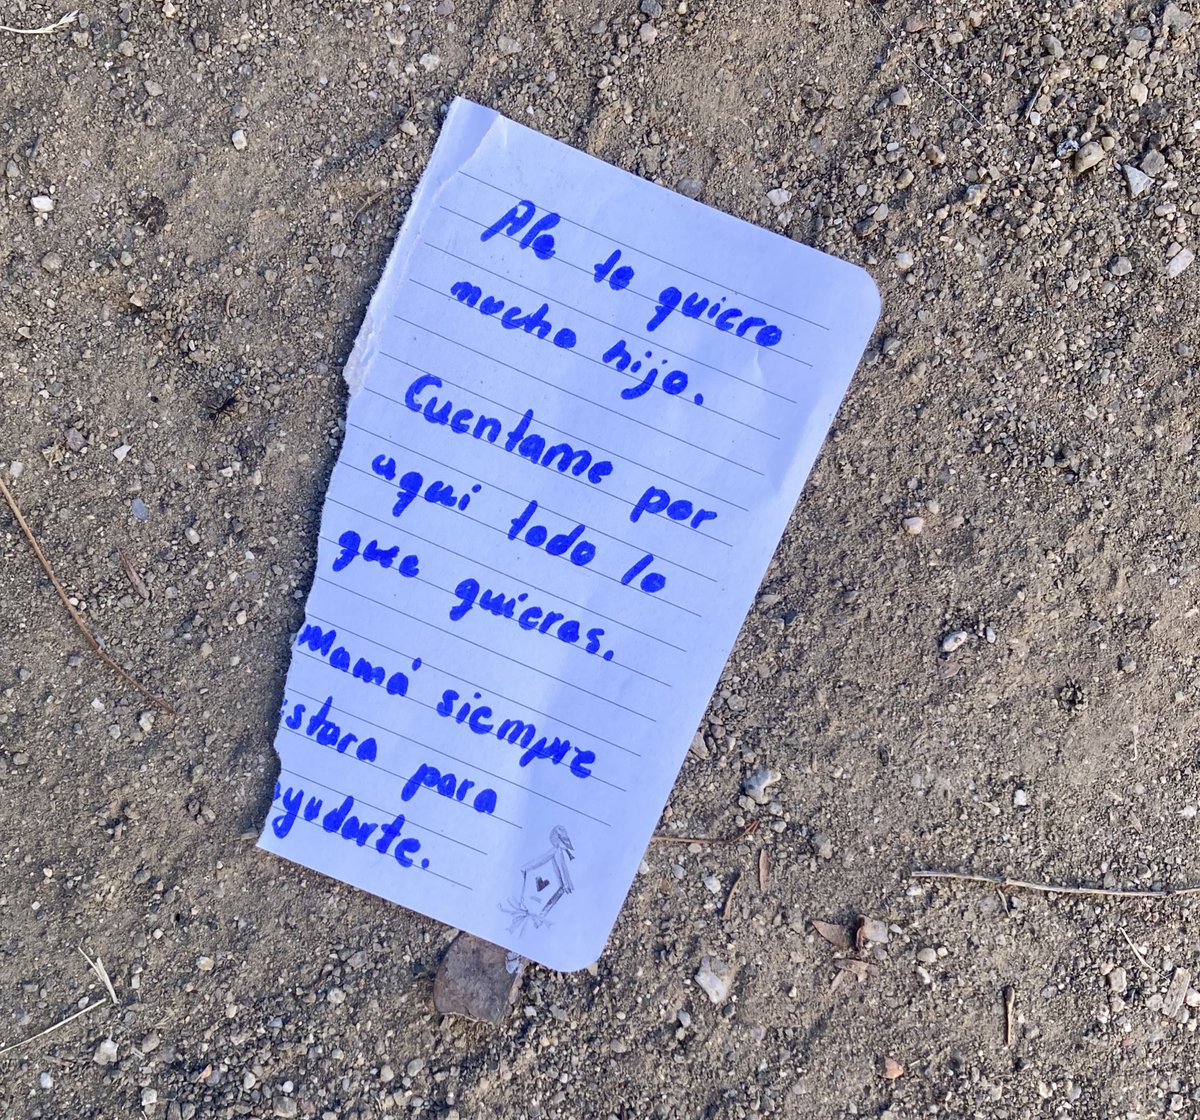 Ale te quiero
mucho hijo.
Cuentame por
aqui todo lo
que quieras.
Mamá siempre
stara para
yudarte.